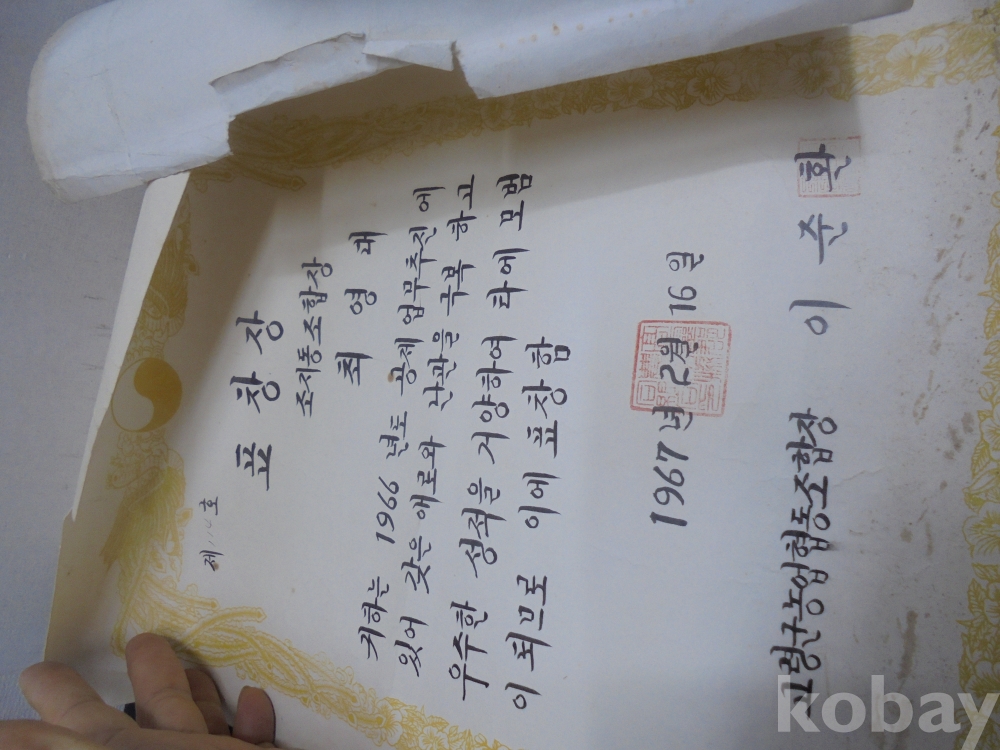 제 호
표창장
조지동조합장
최영대
귀하는 1966 년도 공제 업무추진에
있어 갖은 애로와 난관을 극복하고
우수한 성적을 거양하여 타에 모범
이 되므로 이에 표창함
1967년 2월 16일
고령군농업협동조합장 이준환
kobay